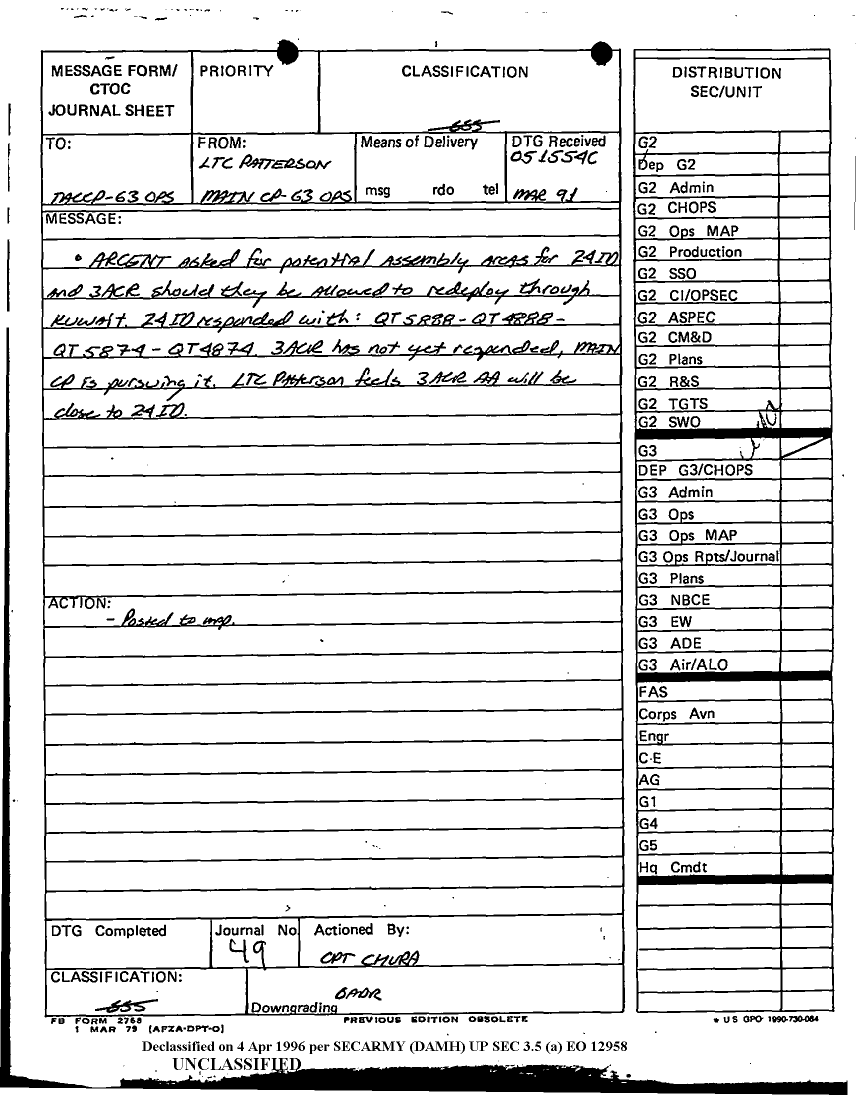 MESSAGE FORM/
CTOC
JOURNAL SHEET
PRIORITY
CLASSIFICATION
TO:
TACCP-G3 OPS
FROM:
LTC PATTERSON
MAIN CP-G3 OPS
Means of Delivery
msg rdo tel
DTG Received
051554C
MAR 91
MESSAGE:
• ARCENT asked for potential Assembly Areas for 24ID
and 3ACR should they be allowed to redeploy through
Kuwait. 24ID responded with: QT5888-QT4888-
QT5874-QT4874. 3ACR has not yet responded, MAIN
CP is pursuing it. LTC Patterson feels 3ACR AA will be
close to 24ID.
ACTION:
- Posted to map.
DTG Completed
Journal No
49
Actioned By:
CPT CHURA
CLASSIFICATION:
OADR
Downgrading
FB FORM 2768
1 MAR 79 (AFZA-DPT-O)
PREVIOUS EDITION OBSOLETE
* US GPO 1990-730-084
DISTRIBUTION
SEC/UNIT
G2
Dep G2
G2 Admin
G2 CHOPS
G2 Ops MAP
G2 Production
G2 SSO
G2 CI/OPSEC
G2 ASPEC
G2 CM&D
G2 Plans
G2 R&S
G2 TGTS
G2 SWO
G3
DEP G3/CHOPS
G3 Admin
G3 Ops
G3 Ops MAP
G3 Ops Rpts/Journal
G3 Plans
G3 NBCE
G3 EW
G3 ADE
G3 Air/ALO
FAS
Corps Avn
Engr
C-E
AG
G1
G4
G5
Hq Cmdt
Declassified on 4 Apr 1996 per SECARMY (DAMH) UP SEC 3.5 (a) EO 12958
UNCLASSIFIED